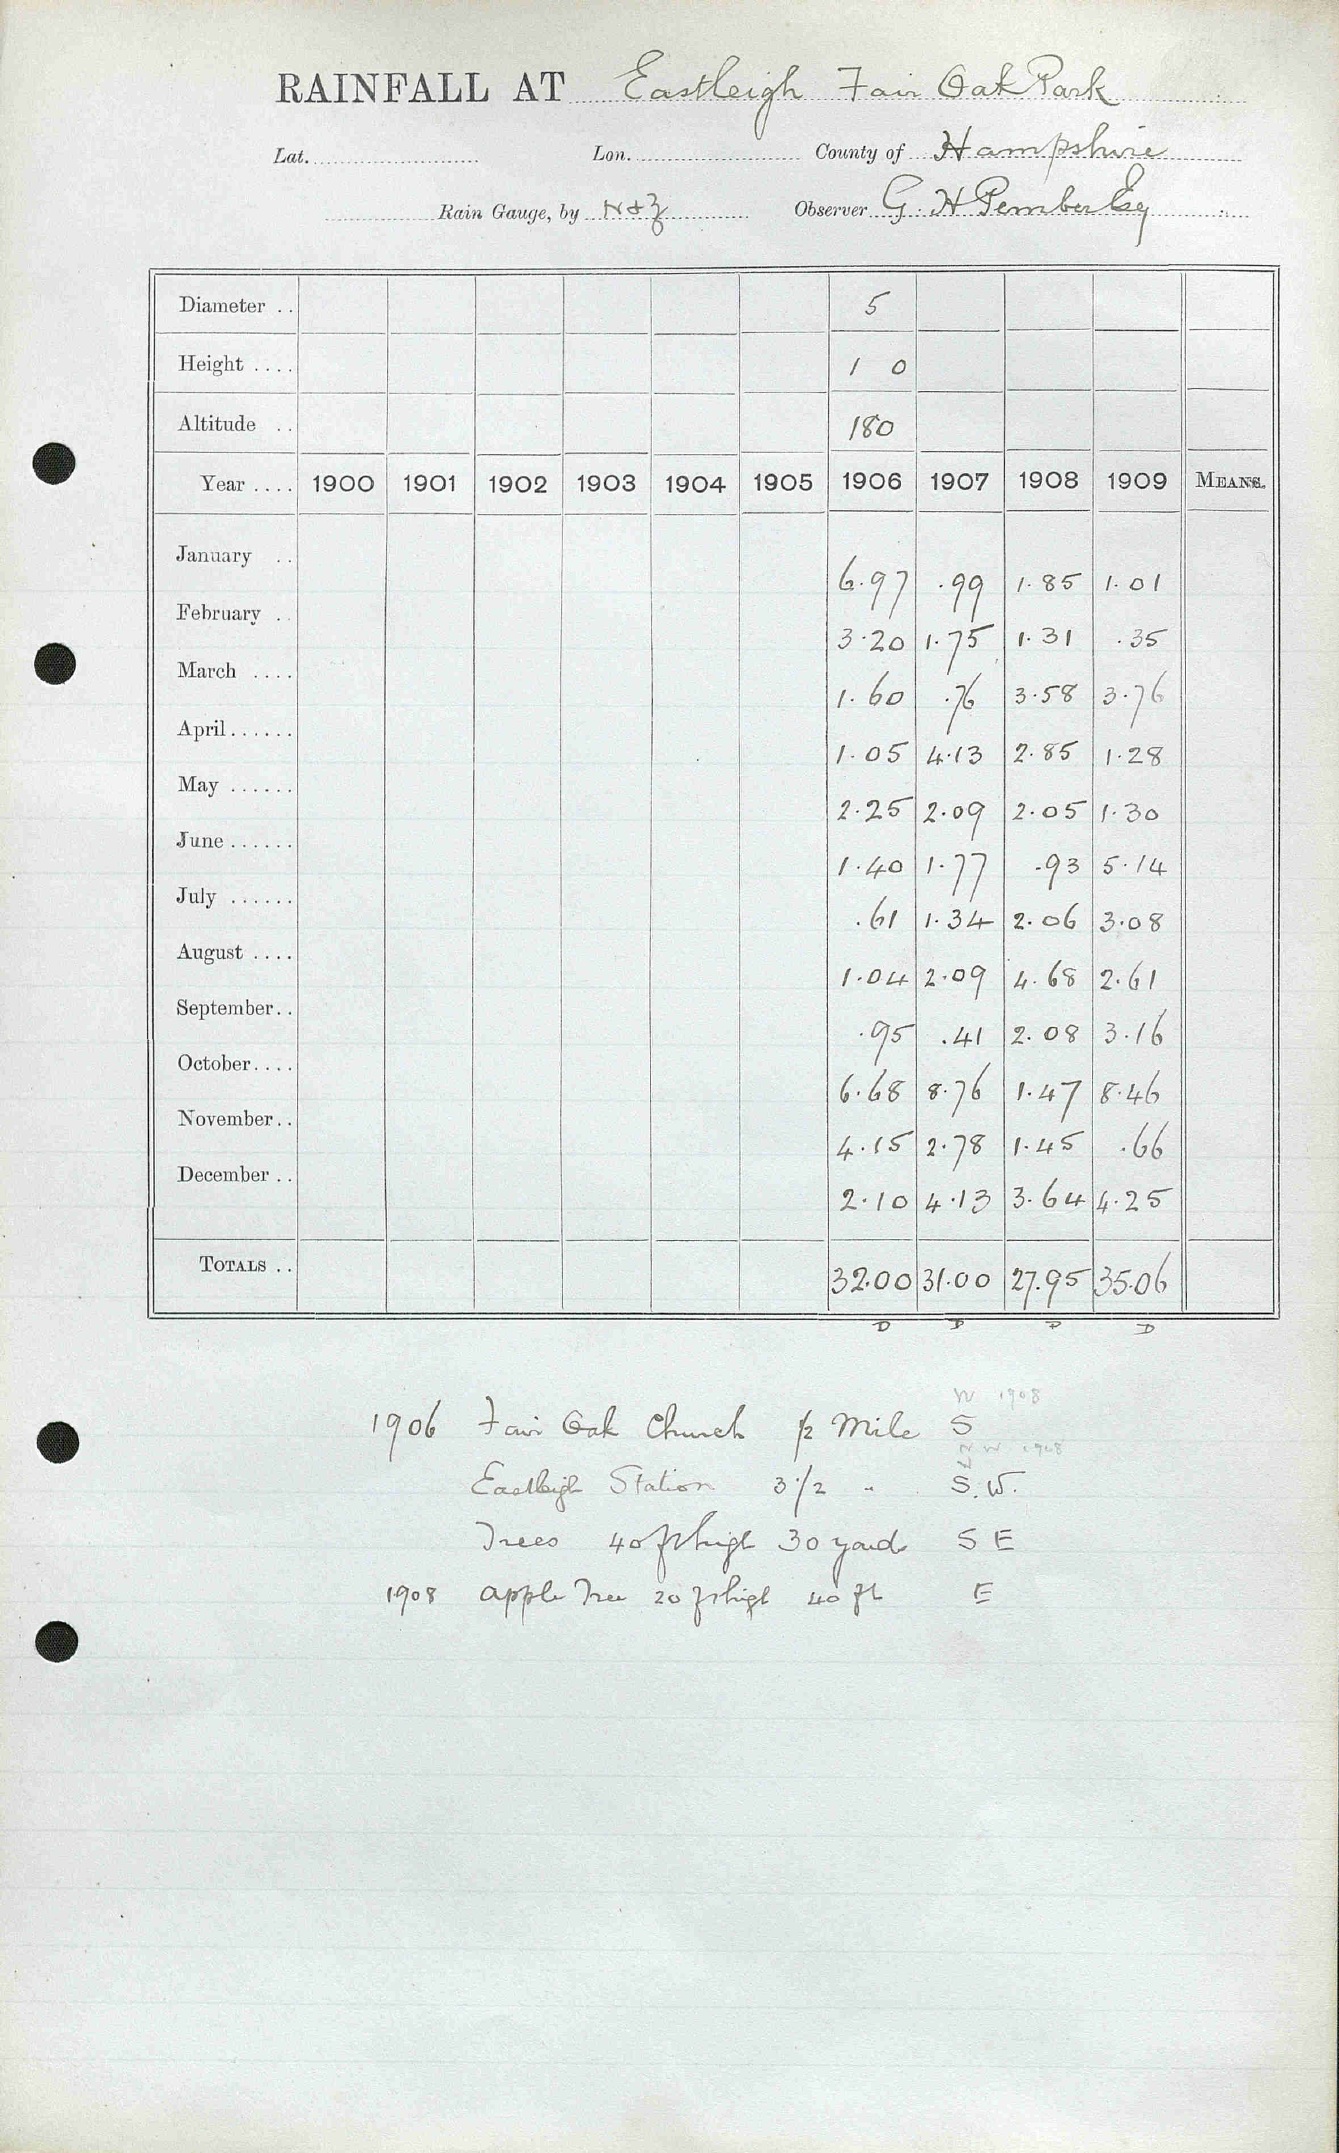 RAINFALL AT Eastleigh Fair Oak Park
Lat. Lon. County of Hampshire
Rain Gauge, by N & Z Observer G. H Pember Esq
Diameter . . 5
Height . . . . 1 0
Altitude . . 180
Year . . . . 1900 1901 1902 1903 1904 1905 1906 1907 1908 1909 MEANS.
January . . 6.97 .99 1.85 1.01
February . . 3.20 1.75 1.31 .35
March . . . . 1.60 .76 3.58 3.76
April . . . . . . 1.05 4.13 2.85 1.28
May . . . . . . 2.25 2.09 2.05 1.30
June . . . . . . 1.40 1.77 .93 5.14
July . . . . . . .61 1.34 2.06 3.08
August . . . . 1.04 2.09 4.68 2.61
September. . .95 .41 2.08 3.16
October. . . . 6.68 8.76 1.47 8.46
November. . 4.15 2.78 1.45 .66
December . . 2.10 4.13 3.64 4.25
TOTALS . . 32.00 31.00 27.95 35.06
D D D D
W 1908
1906 Fair Oak Church ½ Mile S
N W 1908
Eastleigh Station 3 1/2 " S.W.
Trees 40 ft high 30 yards S E
1908 apple Tree 20 ft high 40 ft E